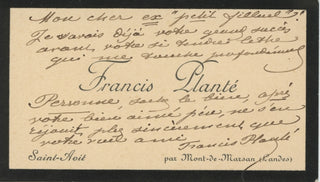 Mon cher ex "petit filleul"!
Je savais déjà votre grand succès
avant votre si tendre lettre
qui me touche profondément
Francis Planté
Personne, sachez le bien, après
votre bien aimé père, ne s'en
réjouit plus sincèrement que
votre vieil ami
Francis Planté
Saint-Avit
par Mont-de-Marsan (Landes)